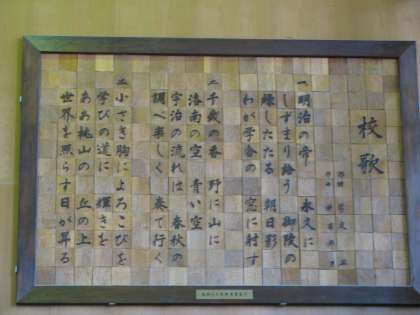 校歌
一 明治の帝 永久に
しずまり給う 御陵の
緑したたる 朝日影
わが学舎の 窓に射す
二 千歳の香 野に山に
洛南の空 青い空
宇治の流れは 春秋の
調べ楽しく 奏で行く
三 小さき胸によろこびを
学びの道に 輝きを
ああ桃山の 丘の上
世界を照らす日が昇る